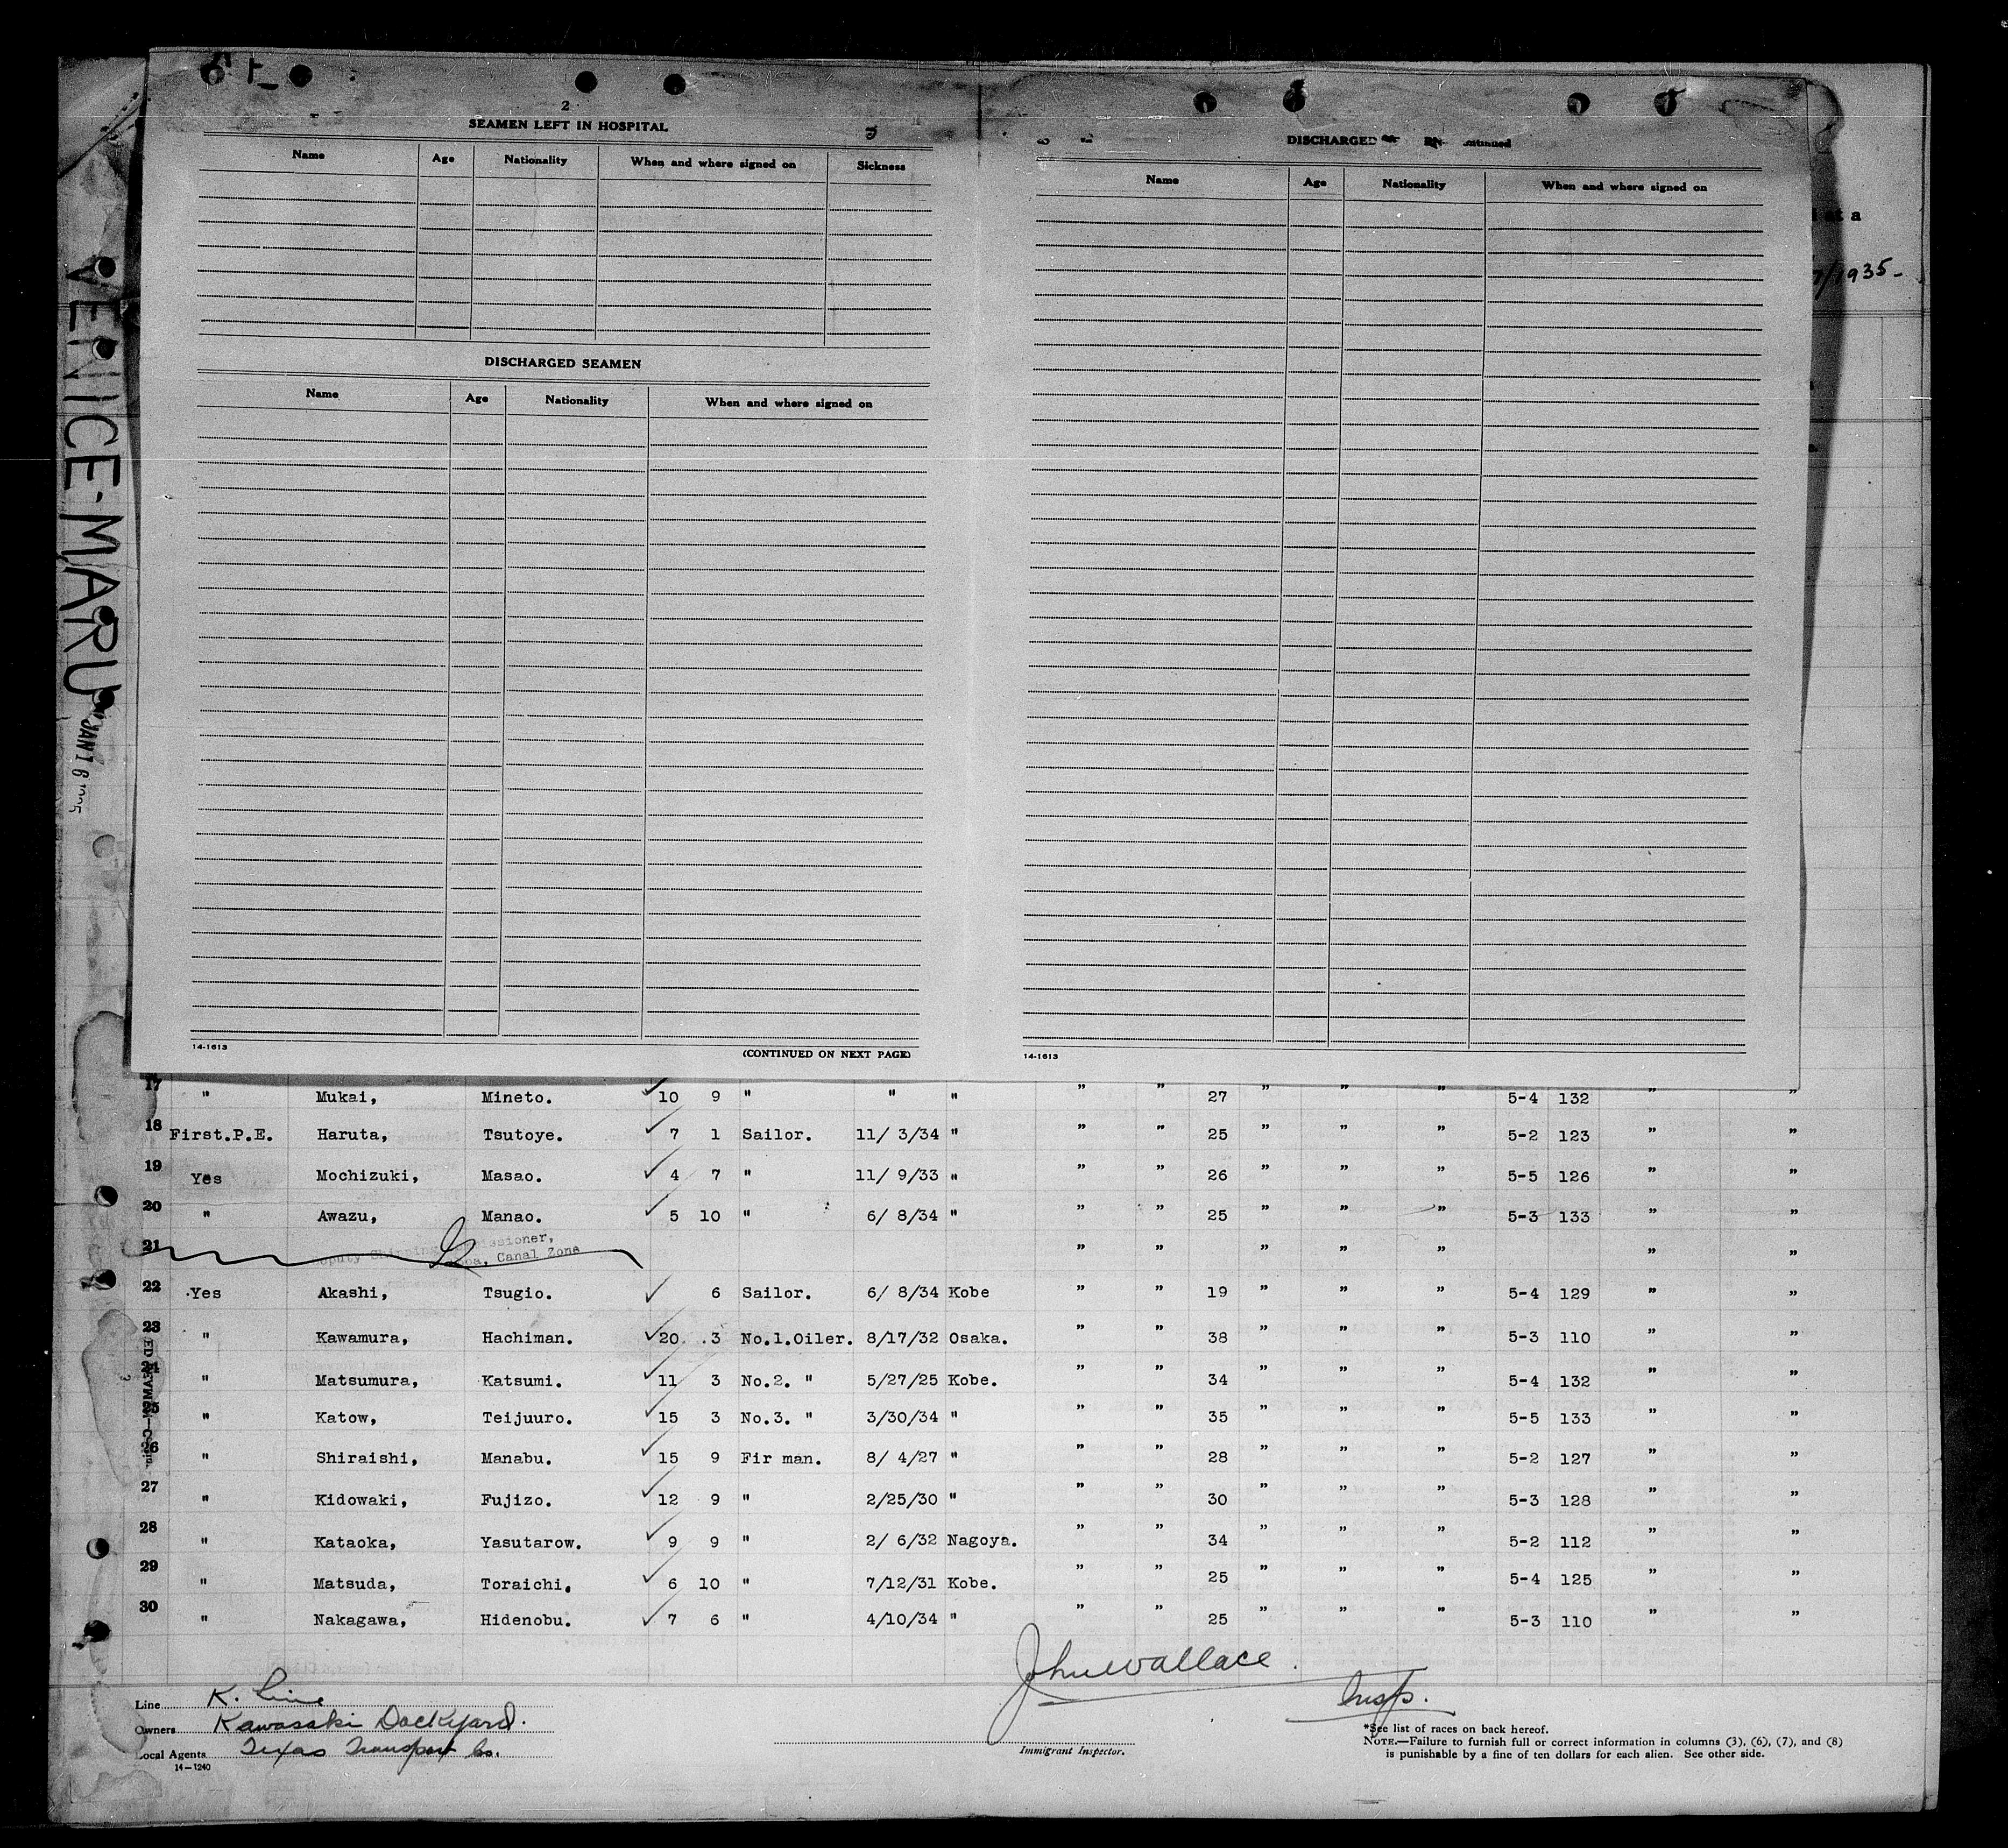 VENICE-MARU
JAN 16
2
SEAMEN LEFT IN HOSPITAL
Name Age Nationality When and where signed on Sickness
DISCHARGED SEAMEN
Name Age Nationality When and where signed on
14-1613 (CONTINUED ON NEXT PAGE)
DISCHARGED
Name Age Nationality When and where signed on
14-1613
at a
/1935-
17 " Mukai, Mineto. ✓ 10 9 " " " " " 27 " " " 5-4 132 " "
18 First.P.E. Haruta, Tsutoye. ✓ 7 1 Sailor. 11/ 3/34 " " " 25 " " " 5-2 123 " "
19 Yes Mochizuki, Masao. ✓ 4 7 " 11/ 9/33 " " " 26 " " " 5-5 126 " "
20 " Awazu, Manao. ✓ 5 10 " 6/ 8/34 " " " 25 " " " 5-3 133 " "
21 Canal Zone " " " " " " "
22 Yes Akashi, Tsugio. ✓ 6 Sailor. 6/ 8/34 Kobe " " 19 " " " 5-4 129 " "
23 " Kawamura, Hachiman. ✓ 20 3 No.1.Oiler. 8/17/32 Osaka. " " 38 " " " 5-3 110 " "
24 " Matsumura, Katsumi. ✓ 11 3 No.2. " 5/27/25 Kobe. " " 34 " " " 5-4 132 " "
25 " Katow, Teijuuro. ✓ 15 3 No.3. " 3/30/34 " " " 35 " " " 5-5 133 " "
26 " Shiraishi, Manabu. ✓ 15 9 Fir man. 8/ 4/27 " " " 28 " " " 5-2 127 " "
27 " Kidowaki, Fujizo. ✓ 12 9 " 2/25/30 " " " 30 " " " 5-3 128 " "
28 " Kataoka, Yasutarow. ✓ 9 9 " 2/ 6/32 Nagoya. " " 34 " " " 5-2 112 " "
29 " Matsuda, Toraichi. ✓ 6 10 " 7/12/31 Kobe. " " 25 " " " 5-4 125 " "
30 " Nakagawa, Hidenobu. ✓ 7 6 " 4/10/34 " " " 25 " " " 5-3 110 " "
John Wallace
Insp.
Line K. Line
Owners Kawasaki Dockyard.
Local Agents Texas Transport Co.
14-1240
Immigrant Inspector.
*See list of races on back hereof.
NOTE.—Failure to furnish full or correct information in columns (3), (6), (7), and (8)
is punishable by a fine of ten dollars for each alien. See other side.